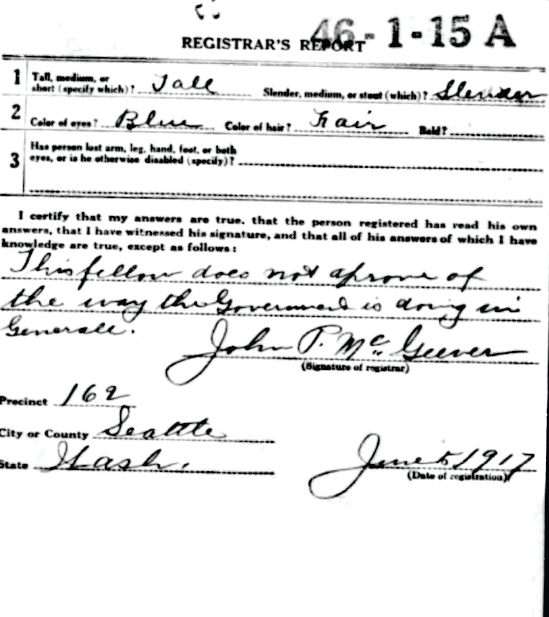 REGISTRAR'S REPORT
46-1-15 A
1 Tall, medium, or short (specify which)? Tall Slender, medium, or stout (which)? Slender
2 Color of eyes? Blue Color of hair? Fair Bald?
3 Has person lost arm, leg, hand, foot, or both
eyes, or is he otherwise disabled (specify)?
I certify that my answers are true, that the person registered has read his own
answers, that I have witnessed his signature, and that all of his answers of which I have
knowledge are true, except as follows:
This fellow does not aprove of
the way the Government is doing in
Generall.
John P. McGeever
(Signature of registrar)
Precinct 162
City or County Seattle
State Wash.
June 5 1917
(Date of registration)